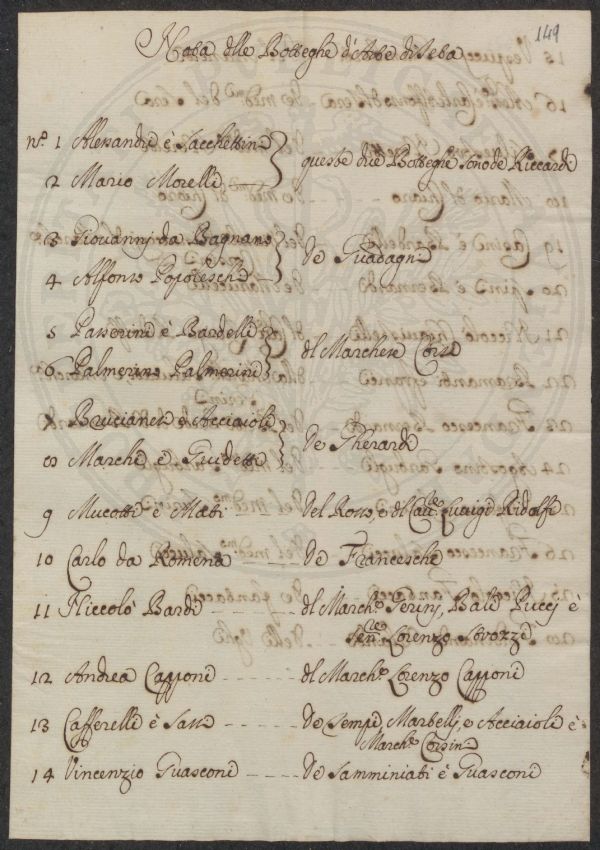 149
Nota delle Botteghe d'Arte di Seta
nº. 1 Alessandri è Sacchettini
queste due Botteghe sono de Riccardi
2 Mario Morelli
3 Giovanni da Bagnano
de Guadagni
4 Alfonso Popoleschi
5 Passerini è Bardelli
del Marchese Corsi
6 Palmerino Palmerini
7 Brucianesi e Acciaioli
de Gherardi
8 Marchi è Guidetti
9 Mucotti è Matti
del Rosso, e del Cau:re Luuigi Ridolfi
10 Carlo da Romena - - - - de Franceschi
11 Niccolò Bardi - - - - del March:e Gerinj, Balì Puccj è
Sen:re Lorenzo
12 Andrea Capponi - - - - del March:e Lorenzo Capponi
13 Cafferelli è - - - - - de Tempi, Marbellj, e Acciaioli è
March:e Corsini
14 Vincenzio Guasconi - - - - de Samminiati è Guasconi